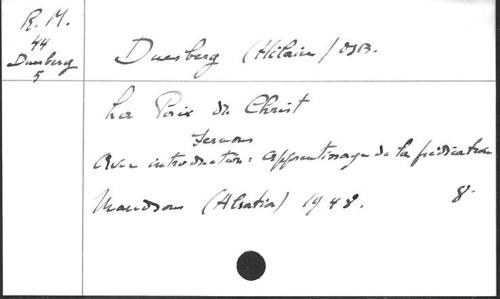 R. M.
44
Duesberg
5
Duesberg (Hilaire) OSB.
La Paix du Christ
Sermons
Avec introduction: apprentissage de la prédication
(Alsatia) 1948. 8.